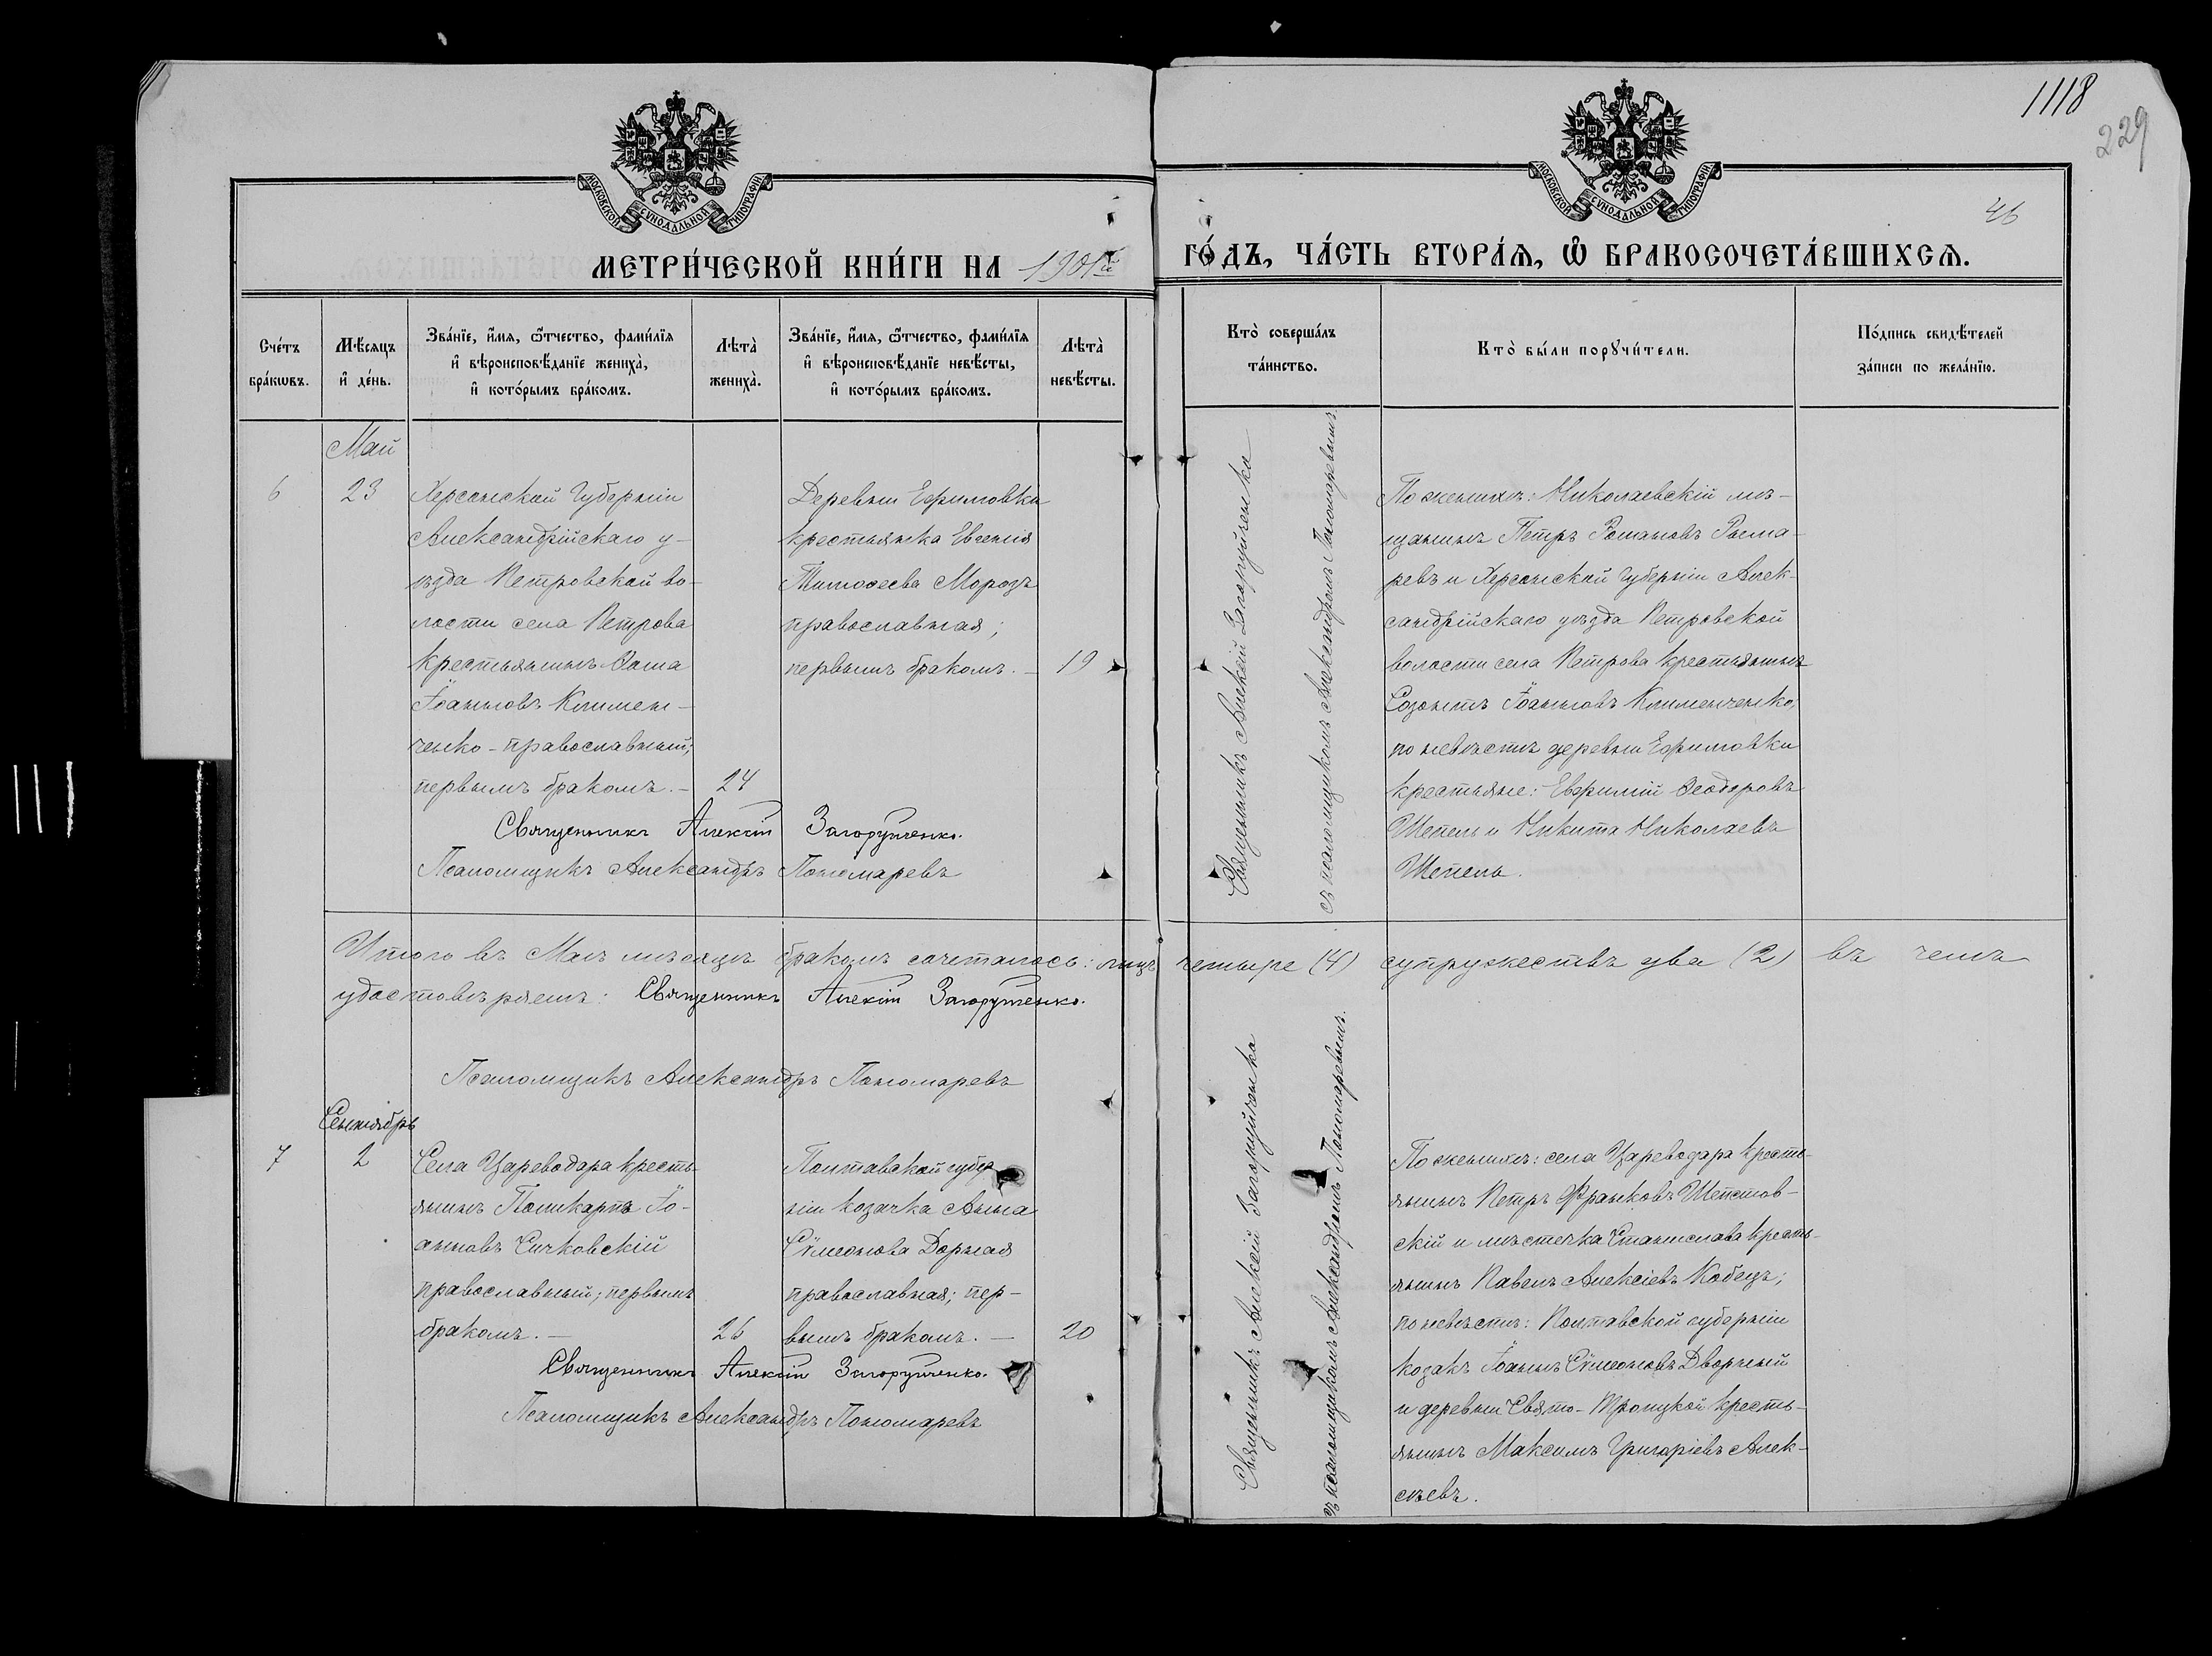 1118
229
46
МОСКОВСКОЙ СѴНОДАЛЬНОЙ ТИПОГРАФІИ
МОСКОВСКОЙ СѴНОДАЛЬНОЙ ТИПОГРАФІИ
МЕТРИ́ЧЕСКОЙ КНИ́ГИ НА 1901й
ГО́ДЪ, ЧА́СТЬ ВТОРА́Ѧ, Ѿ БРАКОСОЧЕТА́ВШИХСѦ.
Сче́тъ бра́кѡвъ.
Мѣ́сяцъ и҆ де́нь.
Зва́нїе, и҆́мя, ѻ҆́тчество, фами́лїя и҆ вѣроисповѣ́данїе женихà, и҆ кото́рымъ бра́комъ.
Лѣтà женихà.
Зва́нїе, и҆́мя, ѻ҆́тчество, фами́лїя и҆ вѣроисповѣ́данїе невѣ́сты, и҆ кото́рымъ бра́комъ.
Лѣтà невѣ́сты.
Ктò соверша́лъ та́инство.
Ктò бы́ли порꙋчи́тели.
По́дпись свидѣ́телей за́писи по жела́нїю.
Май
6
23
Херсонской Губерніи
Александрійскаго у-
ѣзда Петровской во-
лости села Петрова
крестьянинъ Ѳома
Іоанновъ Климен-
ченко - православный;
первымъ бракомъ. -
24
Деревни Ефимовки
крестьянка Евгенія
Тимоѳеева Морозъ
православная;
первымъ бракомъ. -
19
Священникъ Алексій Загоруйченко
съ псаломщикомъ Александромъ Пономаревымъ
По женихѣ: Николаевскій мѣ-
щанинъ Петръ Романовъ Рыма-
ревъ и Херсонской Губерніи Алек-
сандрійскаго уѣзда Петровской
волости села Петрова крестьянинъ
Созонтъ Іоанновъ Клименченко,
по невѣстѣ деревни Ефимовки
крестьяне: Евфимій Ѳеодоровъ
Шепель и Никита Николаевъ
Шепель.
Священникъ Алексій Загоруйченко.
Псаломщикъ Александръ Пономаревъ
Итого въ Маѣ мѣсяцѣ бракомъ сочеталось: лицъ четыре (4) супружествъ два (2) въ чемъ
удостовѣряемъ: Священникъ Алексій Загоруйченко.
Псаломщикъ Александръ Пономаревъ
Сентябрь
7
2
Села Цареводара кресть-
янинъ Поликарпъ Іо-
анновъ Сичковскій
православный; первымъ
бракомъ. -
26
Полтавской губер-
ніи козачка Анна
Сѵмеонова Дорная
православная; пер-
вымъ бракомъ. -
20
Священникъ Алексій Загоруйченко
съ псаломщикомъ Александромъ Пономаревымъ.
По женихѣ: села Цареводара кресть-
янинъ Петръ Франковъ Шепетов-
скій и мѣстечка Станислава кресть-
янинъ Павелъ Алексіевъ Кобецъ;
по невѣстѣ: Полтавской губерніи
козакъ Іоаннъ Сѵмеоновъ Дворный
и деревни Свято-Троицкой кресть-
янинъ Максимъ Григоріевъ Алек-
сѣевъ.
Священникъ Алексій Загоруйченко.
Псаломщикъ Александръ Пономаревъ